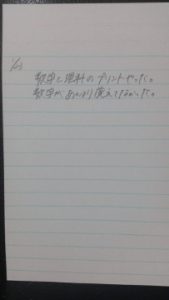 数学と理科のプリントやった。
数学があんまり覚えてなかった。